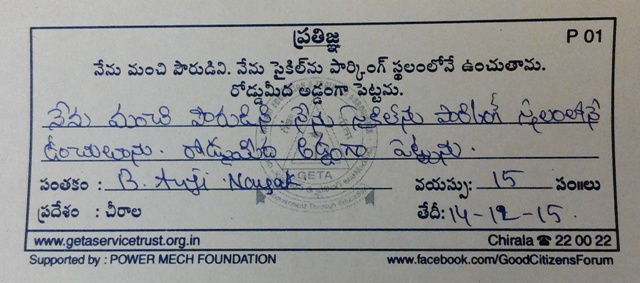 ప్రతిజ్ఞ P 01
నేను మంచి పౌరుడిని. నేను సైకిల్‌ను పార్కింగ్ స్థలంలోనే ఉంచుతాను.
రోడ్డుమీద అడ్డంగా పెట్టను.
నేను మంచి పౌరుడిని నేను సైకిల్‌ను పార్కింగ్ స్థలంలోనే
ఉంచుతాను. రోడ్డుమీద అడ్డంగా పెట్టను.
GETA
సంతకం : B. Anji Nayak వయస్సు: 15 సం॥లు
ప్రదేశం : చీరాల తేదీ: 14-12-15.
www.getaservicetrust.org.in Chirala ☎ 22 00 22
Supported by : POWER MECH FOUNDATION www.facebook.com/GoodCitizensForum